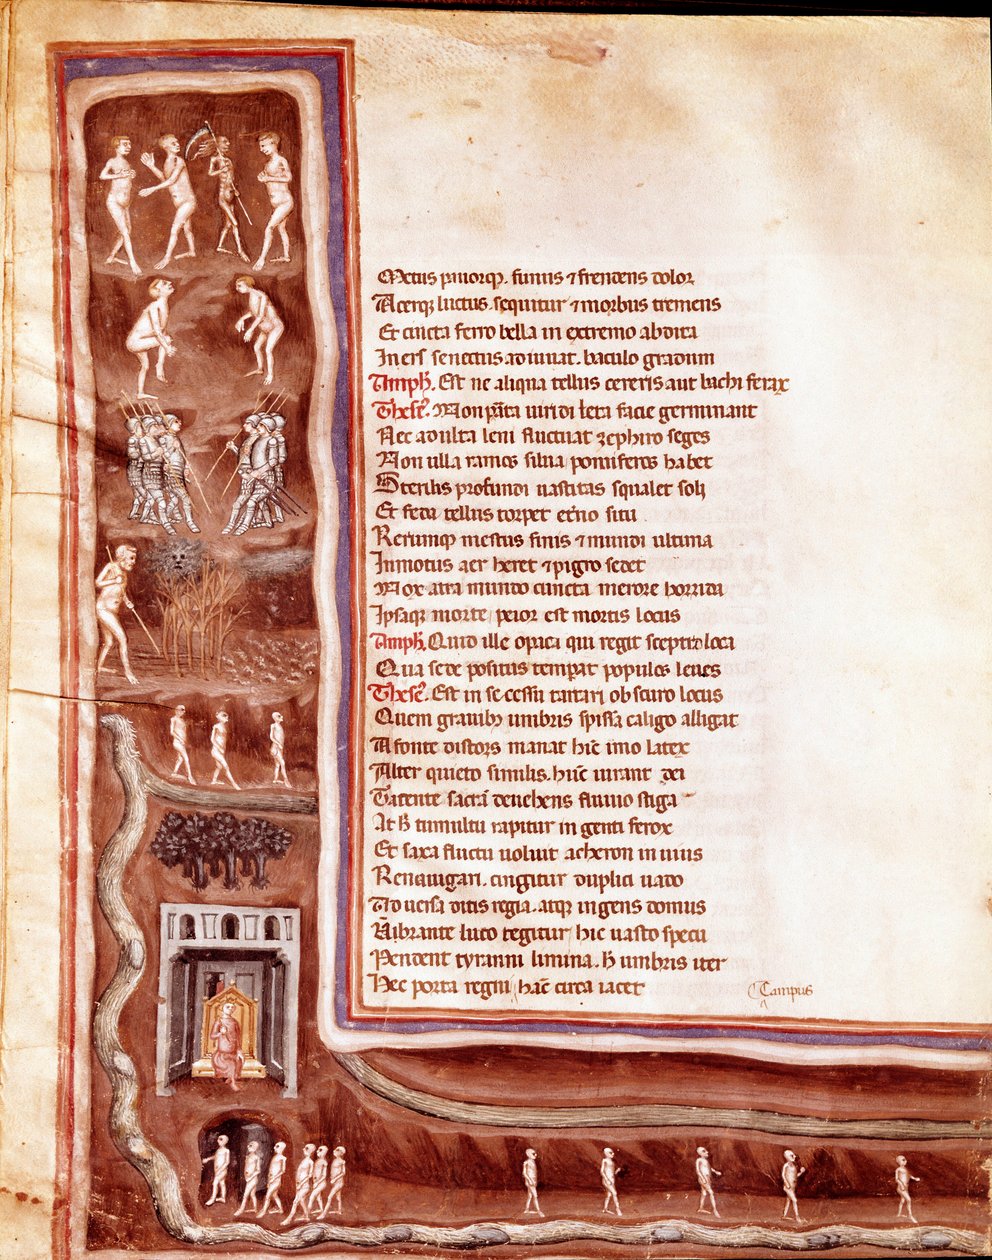 Metus pauorq. funus ⁊ frendens dolor
Acerq luctus. sequitur ⁊ morbus tremens
Et cincta ferro bella in extremo abdita
Iners senectus adiuuat. baculo gradum
Amph. Est ne aliqua tellus cereris aut bachi ferax
These. Non prata uiridi leta facie germinant
Nec adulta leni fluctuat zephiro seges
Non ulla ramos silua pomiferos habet
Sterilis profundi uastitas squalet soli
Et feda tellus torpet eterno situ
Rerumq mestus finis ⁊ mundi ultima
Inmotus aer heret ⁊ pigro sedet
Nox atra mundo cuncta merore horrida
Ipsaq morte peior est mortis locus
Amph. Quid ille opaca qui regit sceptro loca
Qua sede positus temperat populos leues
These. Est in secessu tartari obscuro locus
Quem grauibus umbris spissa caligo alligat
A fonte discors manat hic imo latex
Alter quieto similis. hunc iurant dei
Tacente sacram deuehens fluuio stiga
At hic tumultu rapitur ingenti ferox
Et saxa fluctu uoluit acheron inuius
Renauigari. cingitur duplici uado
Aduersa ditis regia. atq ingens domus
Vibrante luco tegitur hic uasto specu
Pendent tyranni limina. hoc umbris iter
Hec porta regni hanc circa iacet
Campus